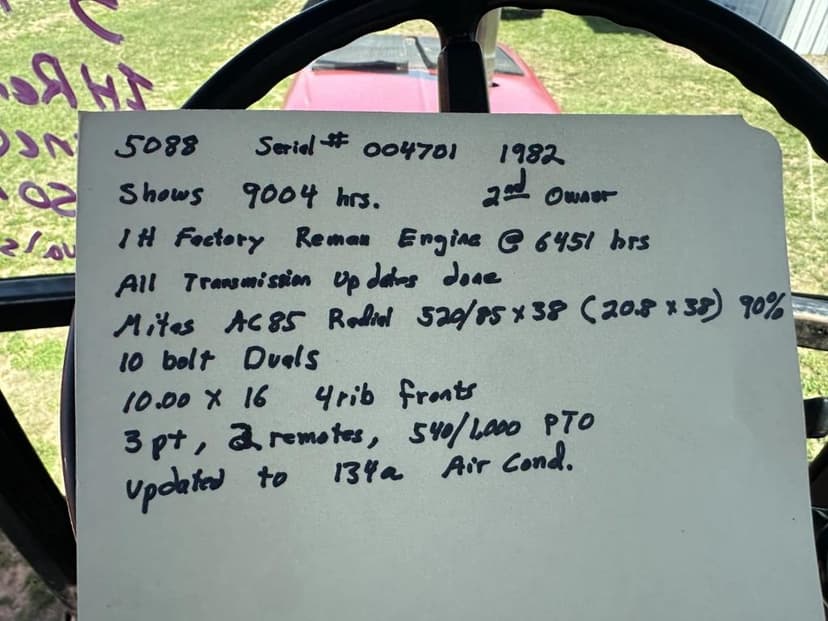 5088 Serial # 004701 1982
Shows 9004 hrs. 2nd Owner
IH Factory Reman Engine @ 6451 hrs
All Transmission Updates done
Mitas AC85 Radial 520/85 x 38 (20.8 x 38) 90%
10 bolt Duals
10.00 x 16 4 rib fronts
3 pt, 2 remotes, 540/1,000 PTO
Updated to 134a Air Cond.